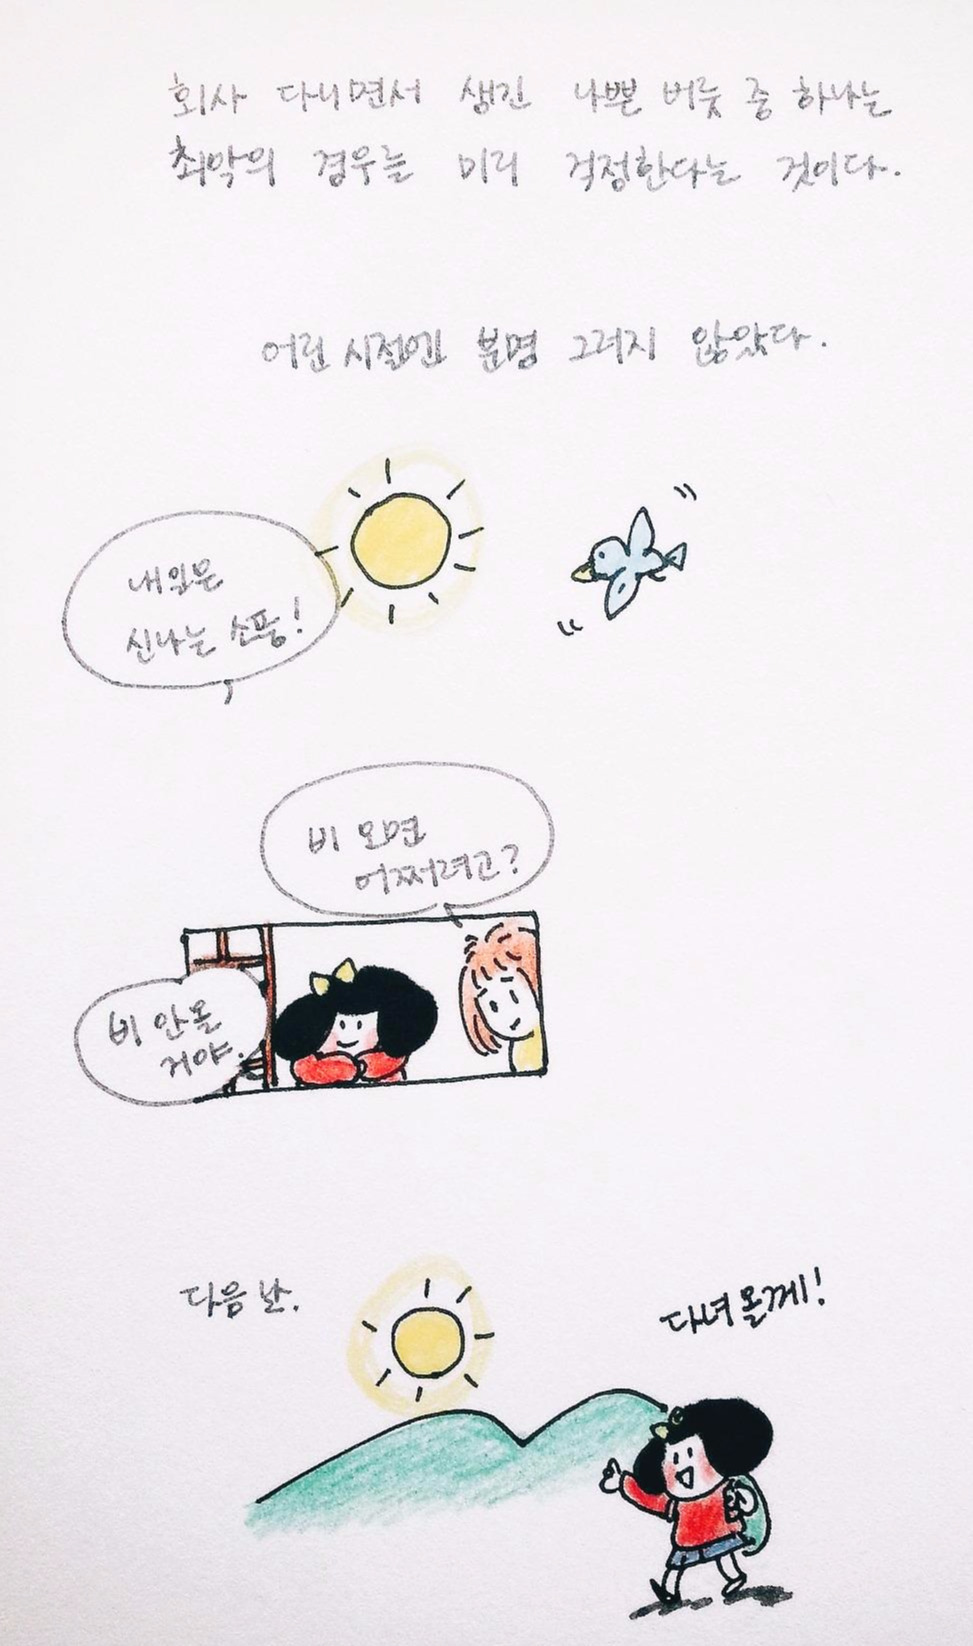 회사 다니면서 생긴 나쁜 버릇 중 하나는
최악의 경우를 미리 걱정한다는 것이다.
어린 시절엔 분명 그러지 않았다.
내일은
신나는 소풍!
비 오면
어쩌려고?
비 안올
거야.
다음 날.
다녀올께!